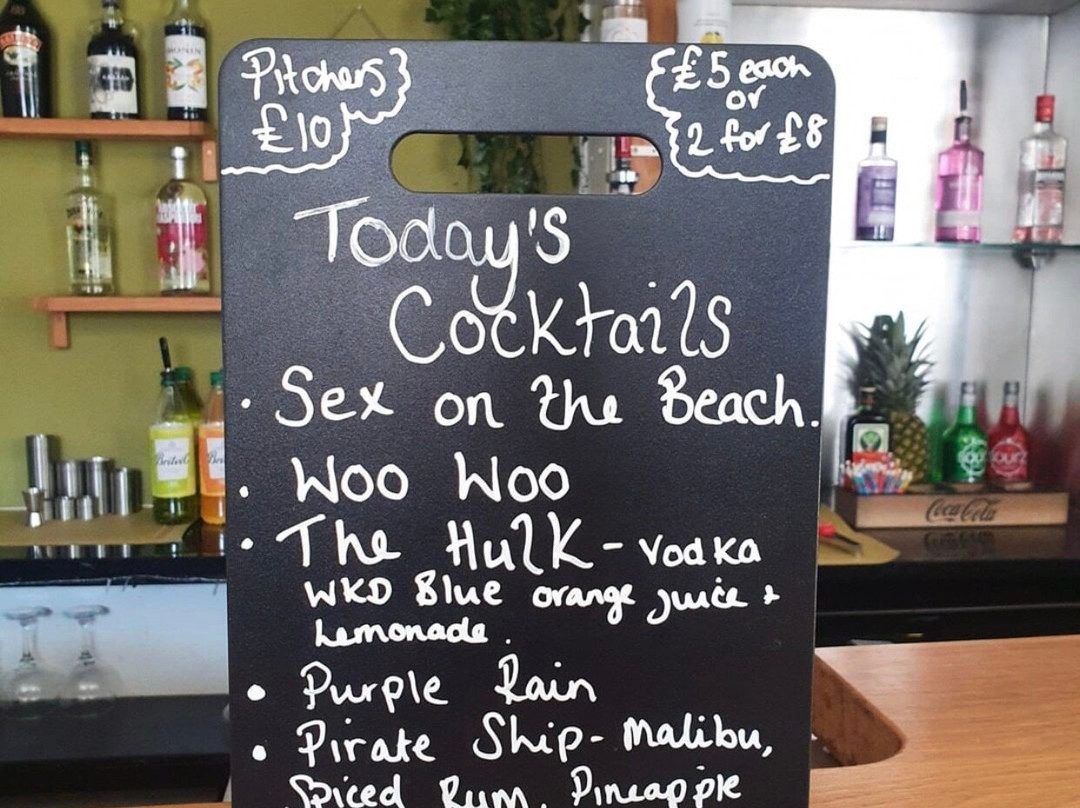 Pitchers
£10
£5 each
or
2 for £8
Today's
Cocktails
• Sex on the Beach.
• Woo Woo
• The Hulk - Vodka
WKD Blue orange juice +
Lemonade.
• Purple Rain
• Pirate Ship - Malibu,
Spiced Rum, Pineapple
Coca-Cola